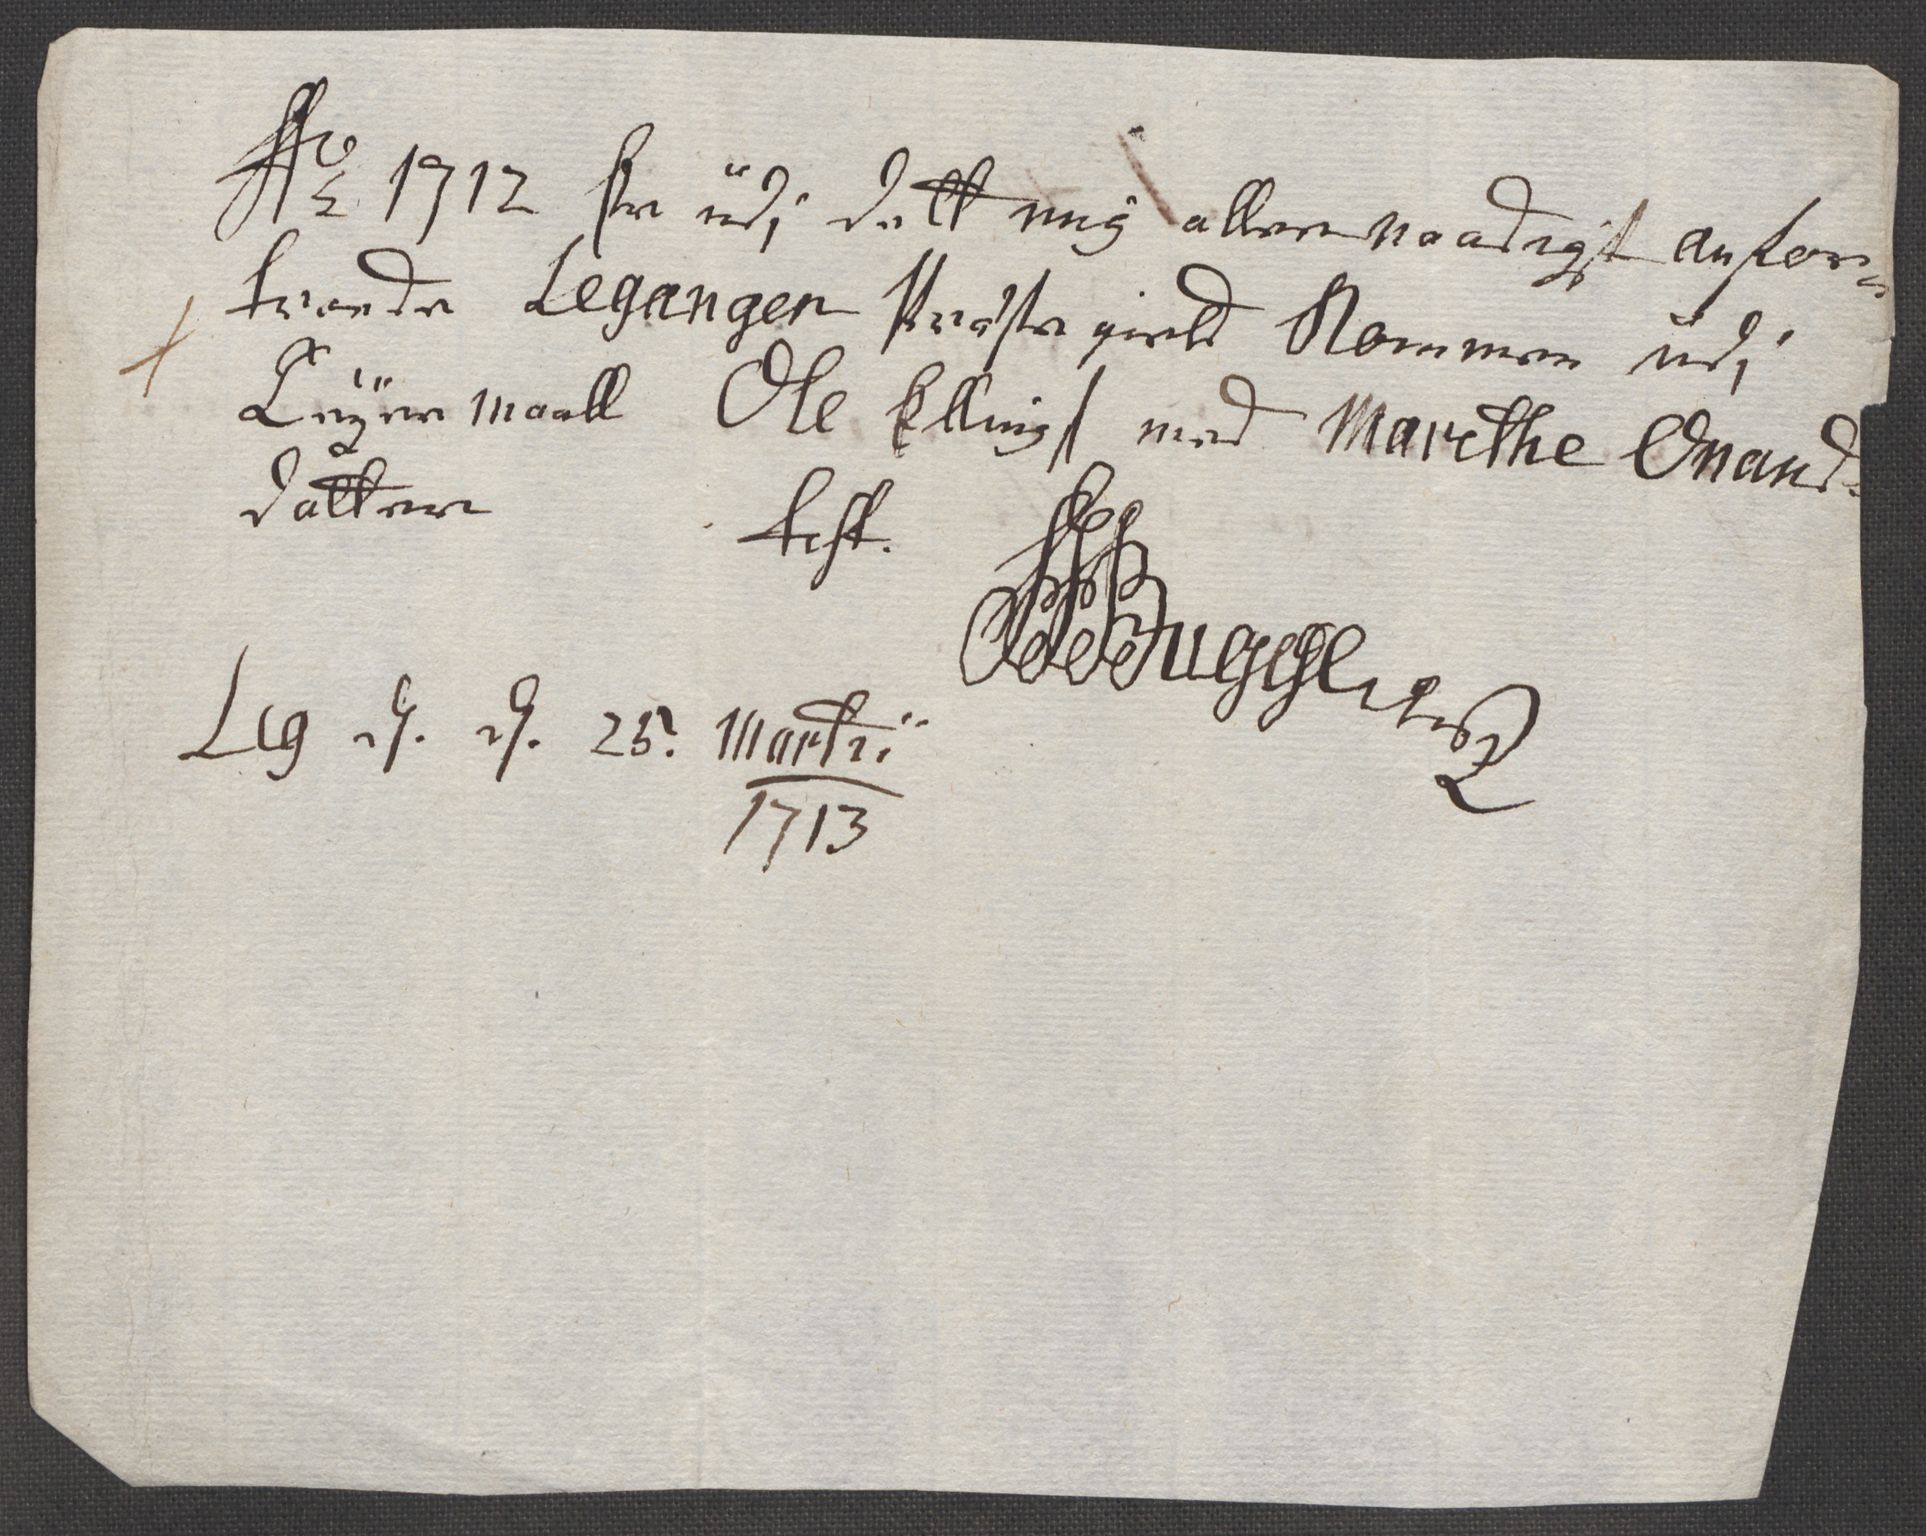 Ao 1712 Er udj dett mig allernaadigst anfor=
troede Leganger Præste gield Kommen udj
Leÿer maall Ole Ellings med Marethe Onand=
datter
test.
Leg d. d. 25. Martii
1713